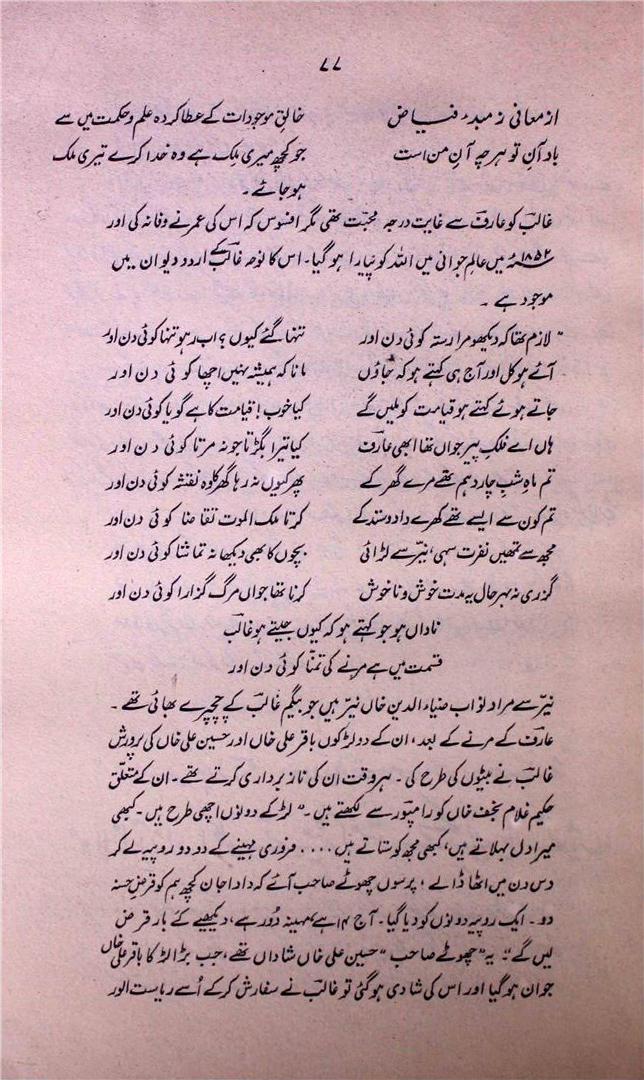 ۷۷
از معانی ز مبدءِ فیاض خالقِ موجودات کے عطا کردہ علم و حکمت میں سے
باد آنِ تو ہرچہ آنِ من است جو کچھ میری مِلک ہے وہ خدا کرے تیری ملک
ہو جائے۔
غالبؔ کو عارفؔ سے غایت درجہ محبّت تھی مگر افسوس کہ اس کی عمر نے وفا نہ کی اور
۱۸۵۲ء میں عالمِ جوانی میں اللہ کو پیارا ہو گیا۔ اس کا نوحہ غالبؔ کے اردو دیوان میں
موجود ہے۔
”لازم تھا کہ دیکھو مرا رستہ کوئی دن اور تنہا گئے کیوں؟ اب رہو تنہا کوئی دن اور
آئے ہو کل اور آج ہی کہتے ہو کہ جاؤں مانا کہ ہمیشہ نہیں اچھا کوئی دن اور
جاتے ہوئے کہتے ہو قیامت کو ملیں گے کیا خوب! قیامت کا ہے گویا کوئی دن اور
ہاں اے فلکِ پیر جواں تھا ابھی عارفؔ کیا تیرا بگڑتا جو نہ مرتا کوئی دن اور
تم ماہِ شبِ چار دہم تھے مرے گھر کے پھر کیوں نہ رہا گھر کا وہ نقشہ کوئی دن اور
تم کون سے ایسے تھے کھرے داد و ستد کے کرتا ملک الموت تقاضا کوئی دن اور
مجھ سے تمھیں نفرت سہی، نیّر سے لڑائی بچّوں کا بھی دیکھا نہ تماشا کوئی دن اور
گزری نہ بہرحال یہ مدت خوش و ناخوش کرنا تھا جواں مرگ گزارا کوئی دن اور
ناداں ہو جو کہتے ہو کہ کیوں جیتے ہو غالبؔ
قسمت میں ہے مرنے کی تمنّا کوئی دن اور
نیّر سے مراد نواب ضیاء الدین خاں نیّر ہیں جو بیگم غالبؔ کے چچیرے بھائی تھے۔
عارفؔ کے مرنے کے بعد، ان کے دو لڑکوں باقر علی خاں اور حسین علی خاں کی پرورش
غالبؔ نے بیٹوں کی طرح کی۔ ہر وقت ان کی ناز برداری کرتے تھے۔ ان کے متعلّق
حکیم غلام نجف خاں کو رامپور سے لکھتے ہیں۔ ”لڑکے دونوں اچھی طرح ہیں۔ کبھی
میرا دل بہلاتے ہیں، کبھی مجھ کو ستاتے ہیں .... فروری مہینے کے دو دو روپیہ لے کر
دس دن میں اٹھا ڈالے، پرسوں چھوٹے صاحب آئے کہ دادا جان کچھ ہم کو قرضِ حسنہ
دو۔ ایک روپیہ دونوں کو دیا گیا۔ آج ۱۴ ہے مہینہ دُور ہے، دیکھیے کَے بار قرض
لیں گے“۔ یہ ”چھوٹے صاحب“ حسین علی خاں شاداں تھے، جب بڑا لڑکا باقر علی خاں
جوان ہو گیا اور اس کی شادی ہو گئی تو غالبؔ نے سفارش کر کے اُسے ریاست الور